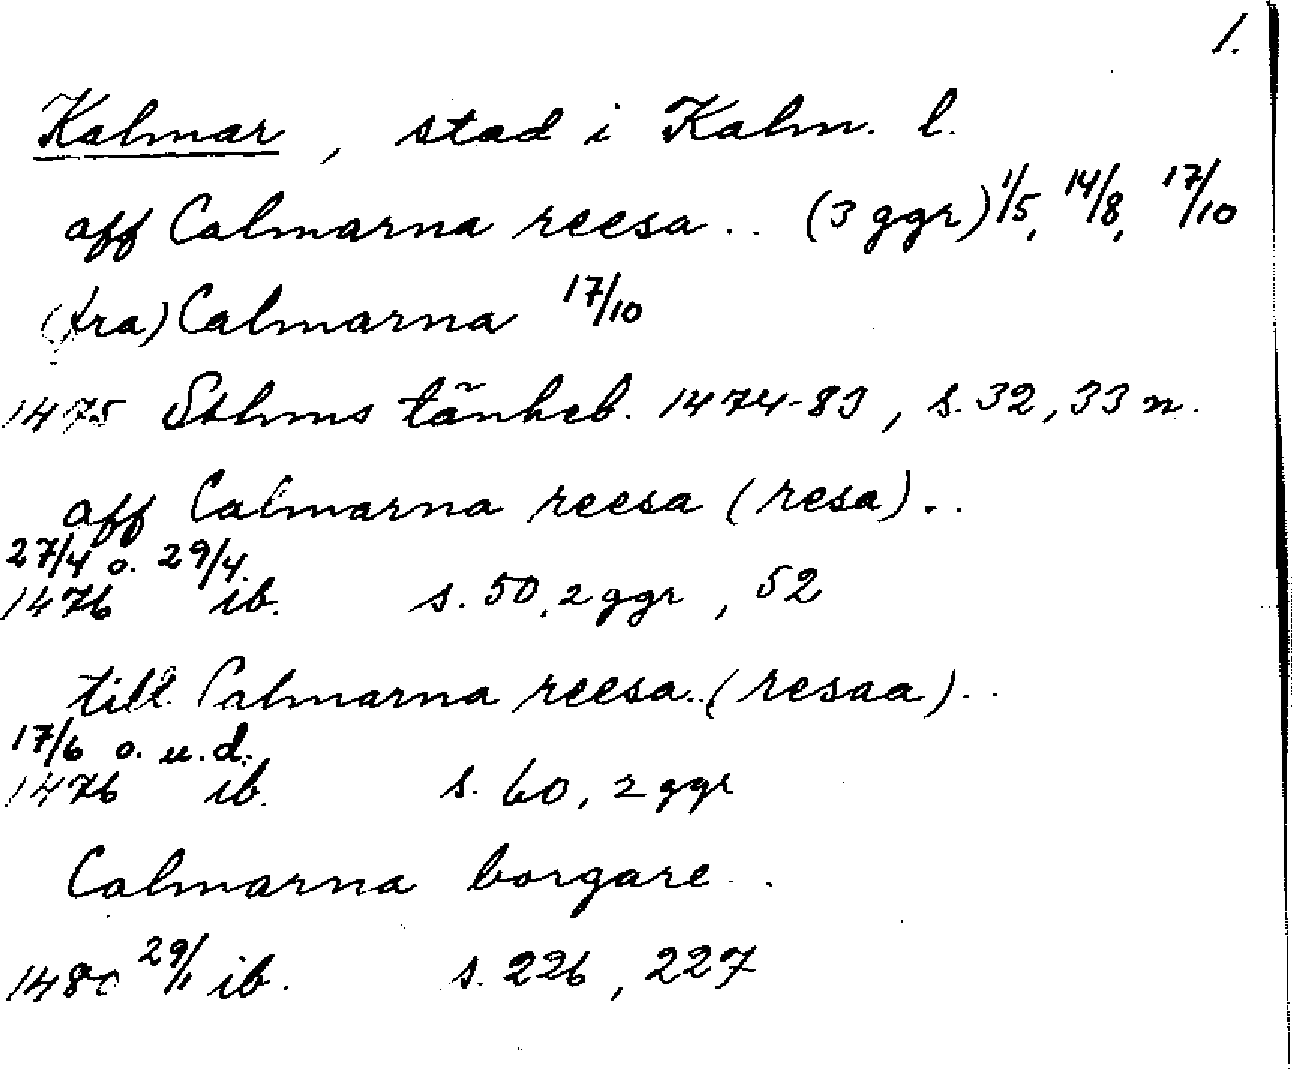 1.
Kalmar, stad i Kalm. l.
aff Calmarna reesa.. (3 ggr) 1/5, 14/8, 17/10
(fra) Calmarna 17/10
1475 Sthms tänkeb. 1474-83, s. 32, 33 n.
aff Calmarna reesa (resa)..
27/4 o. 29/4.
1476 ib. s. 50, 2 ggr, 52
till Calmarna reesa.. (resaa)..
17/6 o. u.d.
1476 ib. s. 60, 2 ggr
Calmarna borgare..
1480 29/1 ib. s. 226, 227